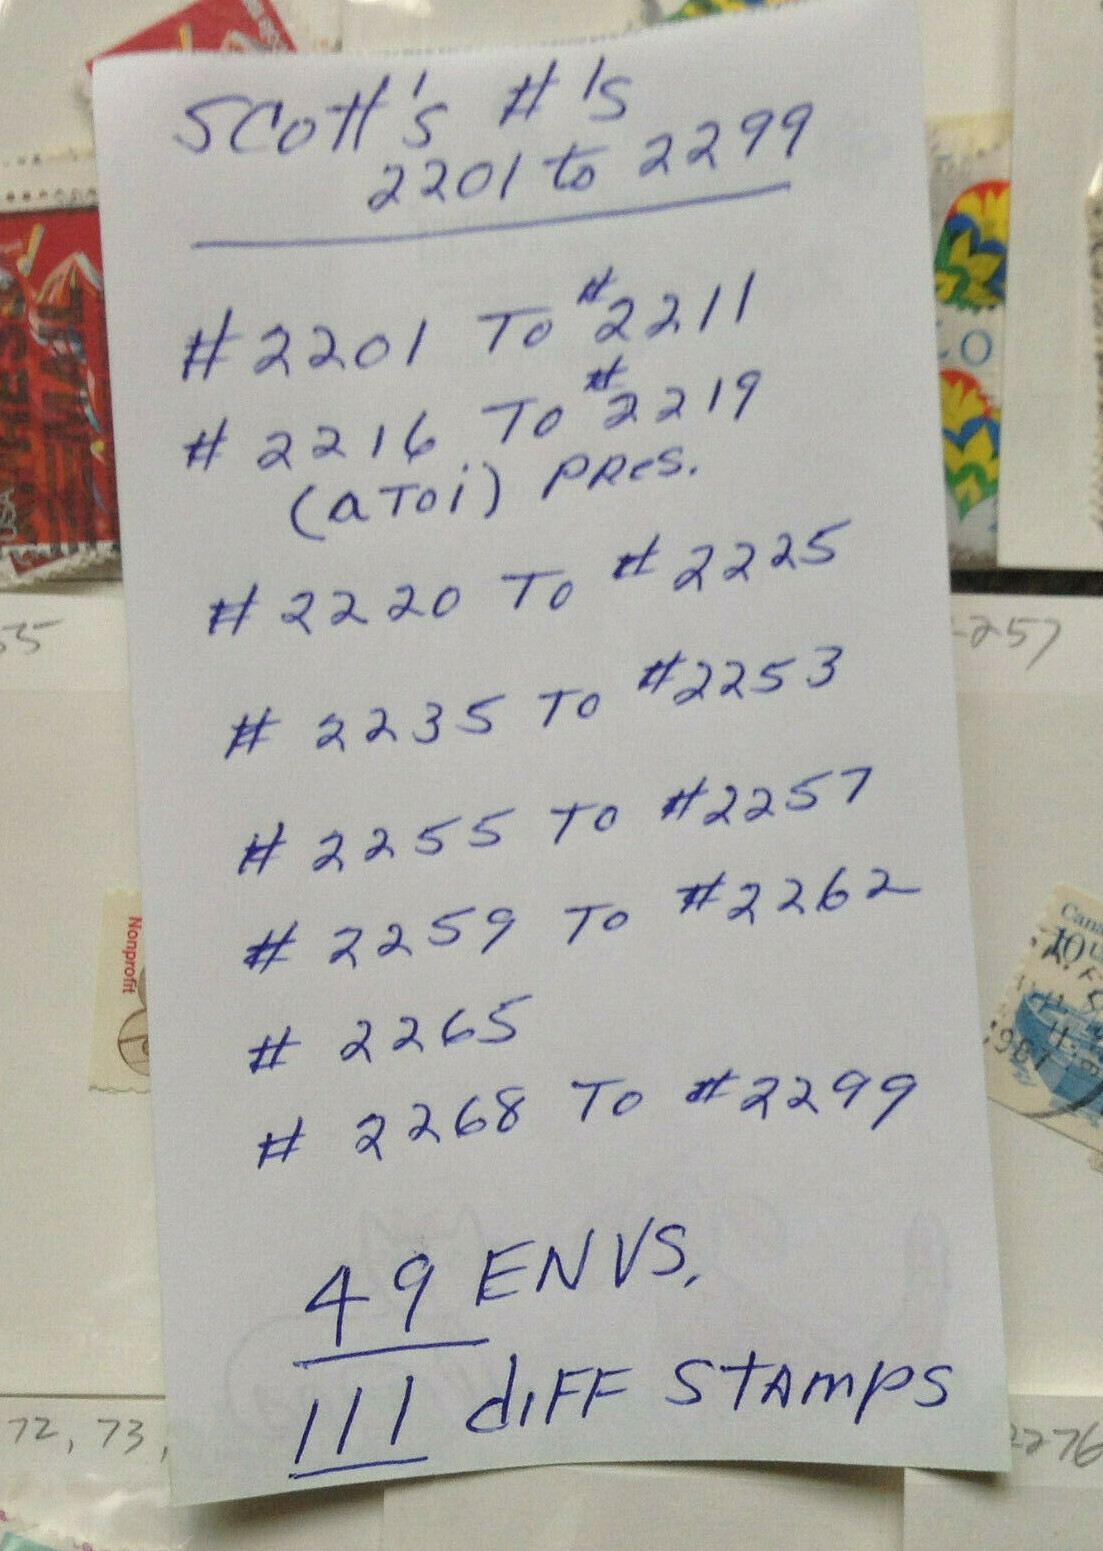 Scott's #'s
2201 to 2299
# 2201 To #2211
# 2216 To #2219
(a To i) PRes.
# 2220 To #2225
# 2235 To #2253
# 2255 To #2257
# 2259 To #2262
# 2265
# 2268 To #2299
49 ENVS,
111 diFF STAmps
MAIL
USA
55
2257
Nonprofit
Cana
10
1987
72, 73,
2276